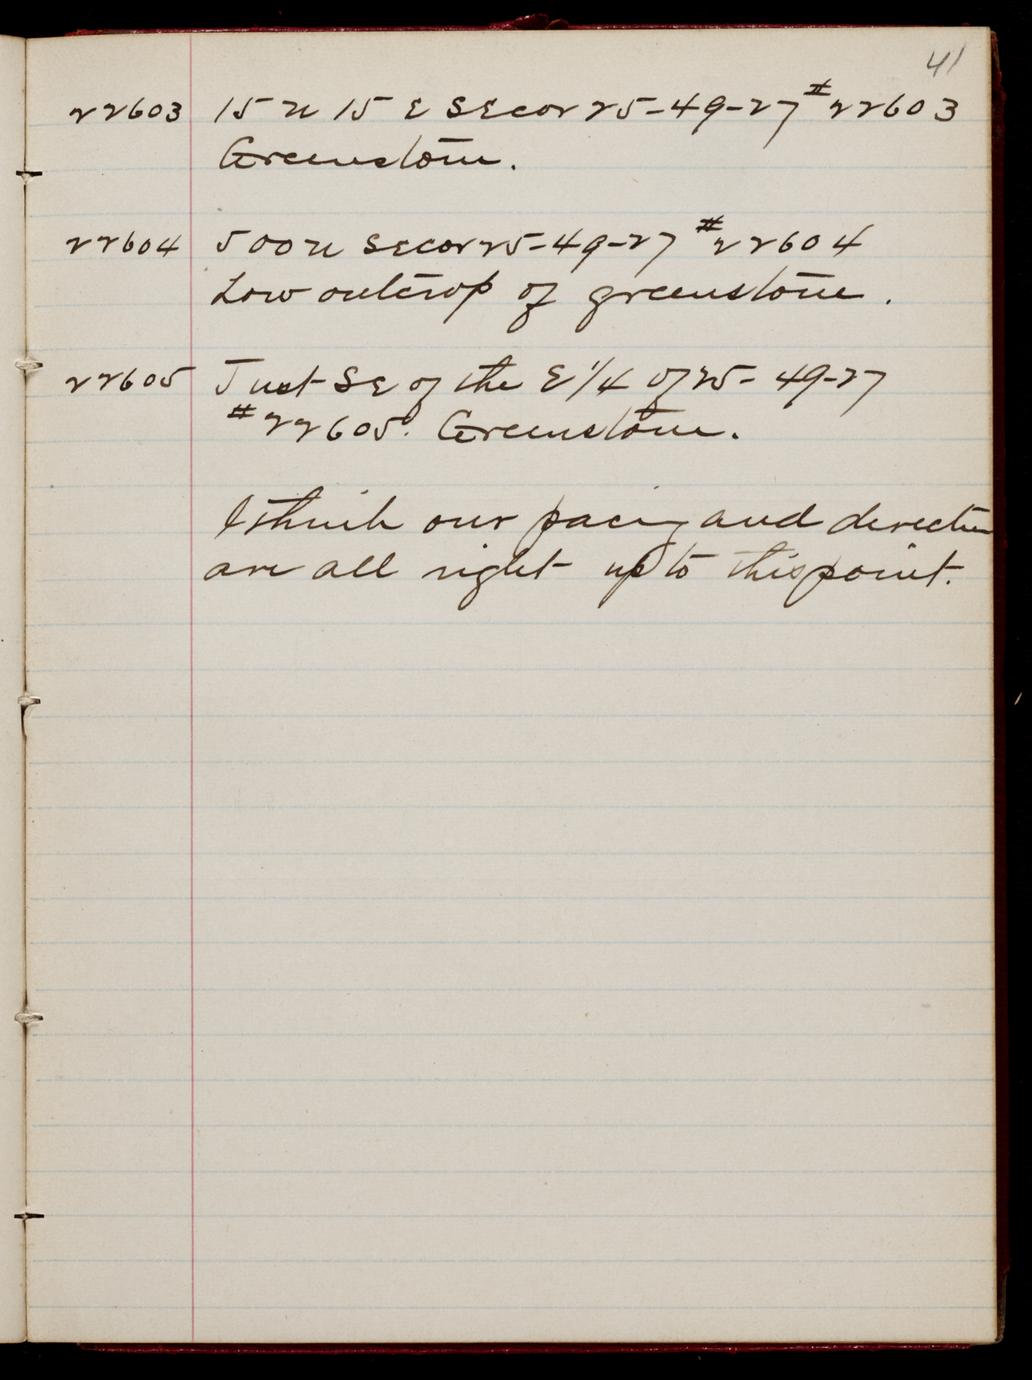 41
22603 15 N 15 E SE cor 25-49-27 #22603
Greenstone.
22604 500 N SE cor 25-49-27 #22604
Low outcrop of greenstone.
22605 Just SE of the E 1/4 of 25-49-27
#22605. Greenstone.
I think our pacing and direction
are all right up to this point.